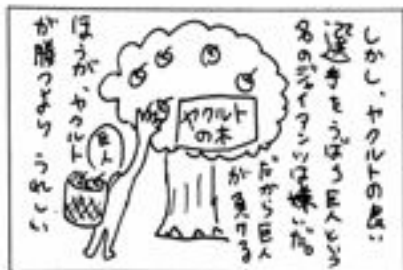 しかし、ヤクルトの良い
選手をうばう巨人という
名のジャイアンツは嫌いだ。
だから巨人
が負ける
ほうが、ヤクルト
が勝つより うれしい
ヤクルト
の木
巨人